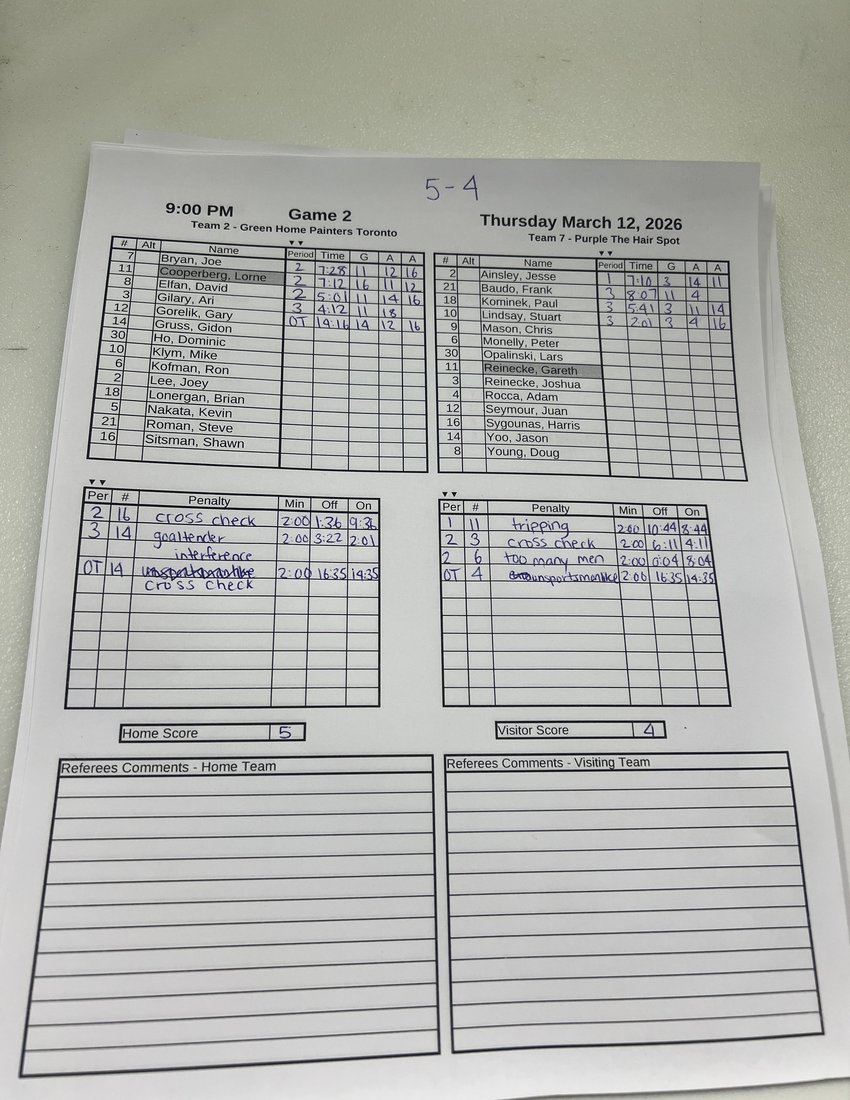 5-4
9:00 PM Game 2 Thursday March 12, 2026
Team 2 - Green Home Painters Toronto
Team 7 - Purple The Hair Spot
# Alt Name Period Time G A A
7 Bryan, Joe 2 7:28 11 12 16
11 Cooperberg, Lorne 2 7:12 16 11 12
8 Elfan, David 2 5:01 11 14 16
3 Gilary, Ari 3 4:12 11 18
12 Gorelik, Gary OT 14:16 14 12 16
14 Gruss, Gidon
30 Ho, Dominic
10 Klym, Mike
6 Kofman, Ron
2 Lee, Joey
18 Lonergan, Brian
5 Nakata, Kevin
21 Roman, Steve
16 Sitsman, Shawn
# Alt Name Period Time G A A
2 Ainsley, Jesse 1 7:10 3 14 11
21 Baudo, Frank 3 8:07 11 4
18 Kominek, Paul 3 5:41 3 11 14
10 Lindsay, Stuart 3 2:01 3 4 16
9 Mason, Chris
6 Monelly, Peter
30 Opalinski, Lars
11 Reinecke, Gareth
3 Reinecke, Joshua
4 Rocca, Adam
12 Seymour, Juan
16 Sygounas, Harris
14 Yoo, Jason
8 Young, Doug
Per # Penalty Min Off On
2 16 cross check 2:00 1:36 9:36
3 14 goaltender 2:00 3:22 2:01
interference
OT 14 unsportsmanlike 2:00 16:35 14:35
cross check
Per # Penalty Min Off On
1 11 tripping 2:00 10:44 8:44
2 3 cross check 2:00 6:11 4:11
2 6 too many men 2:00 0:04 8:04
OT 4 unsportsmenlike 2:00 16:35 14:35
Home Score 5
Visitor Score 4
Referees Comments - Home Team
Referees Comments - Visiting Team